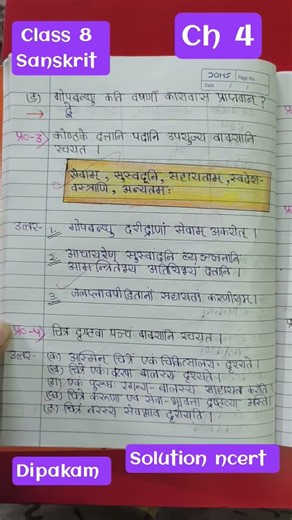 Class 8
Sanskrit
Ch 4
DOMS Page No.
Date / /
(ङ) गोपबन्धुः कति वर्षाणां कारावासं प्राप्तवान् ?
→ द्वे
प्र०-3 कोष्ठके दत्तानि पदानि उपयुज्य वाक्यानि
रचयत ।
सेवाम्, सुस्वदूनि, सहायताम्, स्वदेश-
वस्त्राणि, अन्यतमः
उत्तर- 1. गोपबन्धु दरीद्राणां सेवाम् अकरोत् ।
2. आचार्येण सुस्वादूनि व्यञ्जनानि
आमन्त्रितेभ्यः अतिथिभ्यः दत्तानि ।
3. जलप्लावपीडितानां सहायतां करणीयम् ।
प्र०-4 चित्रं दृष्टवा पञ्च वाक्यानि रचयत ।
उत्तर- (क) अस्मिन् चित्रे एकं चिकित्सालयः दृश्यते ।
(ख) चित्रे एकः बालस्य दृश्यते ।
(ग) एकः पुरुषः रुग्णा बालस्य साहाय्यं करोति ।
(घ) चित्रे करुणा एवं सेवा-भावना अस्ति ।
(ङ) चित्रं नरस्य सेवाभावं
Dipakam
Solution ncert